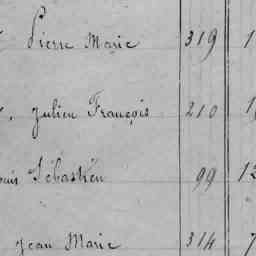 Pierre Marie 319 1
Julien François 210 1
ouis Sébastien 99 12
Jean Marie 314 7